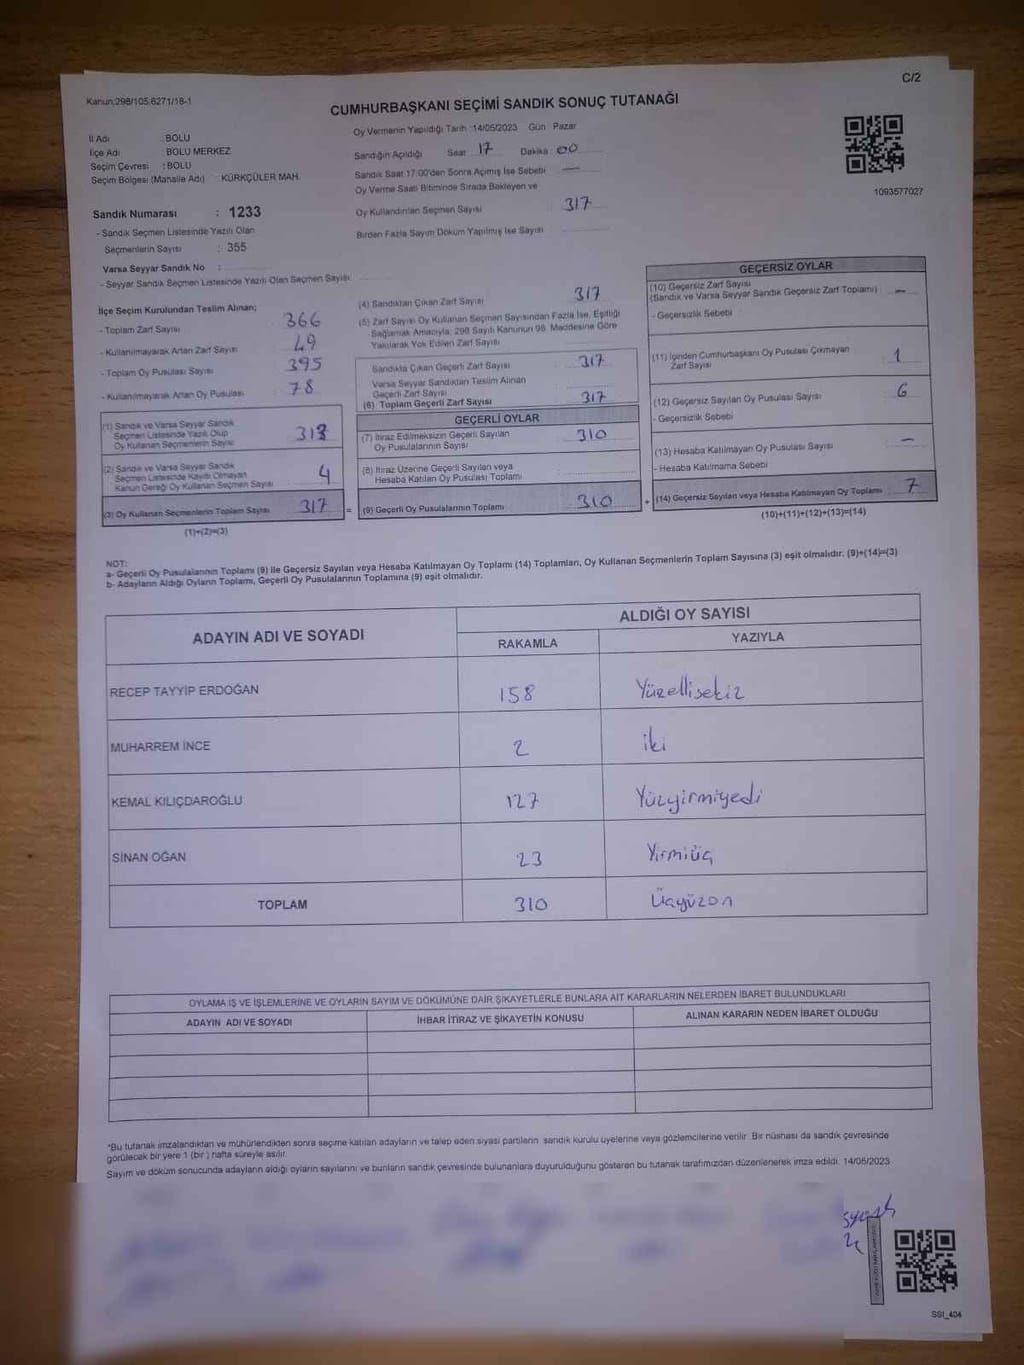 C/2
Kanun;298/105;6271/18-1
CUMHURBAŞKANI SEÇİMİ SANDIK SONUÇ TUTANAĞI
İl Adı : BOLU
İlçe Adı : BOLU MERKEZ
Seçim Çevresi : BOLU
Seçim Bölgesi (Mahalle Adı) : KÜRKÇÜLER MAH.
Sandık Numarası : 1233
- Sandık Seçmen Listesinde Yazılı Olan
Seçmenlerin Sayısı : 355
Varsa Seyyar Sandık No :
- Seyyar Sandık Seçmen Listesinde Yazılı Olan Seçmen Sayısı
Oy Vermenin Yapıldığı Tarih :14/05/2023 Gün Pazar
Sandığın Açıldığı Saat 17 Dakika 00
Sandık Saat 17:00'den Sonra Açılmış İse Sebebi —
Oy Verme Saati Bitiminde Sırada Bekleyen ve
Oy Kullandırılan Seçmen Sayısı 317
Birden Fazla Sayım Döküm Yapılmış İse Sayısı
1093577027
İlçe Seçim Kurulundan Teslim Alınan;
- Toplam Zarf Sayısı 366
- Kullanılmayarak Artan Zarf Sayısı 49
- Toplam Oy Pusulası Sayısı 395
- Kullanılmayarak Artan Oy Pusulası 78
(1) Sandık ve Varsa Seyyar Sandık
Seçmen Listesinde Yazılı Olup
Oy Kullanan Seçmenlerin Sayısı 313
(2) Sandık ve Varsa Seyyar Sandık
Seçmen Listesinde Kayıtlı Olmayan
Kanun Gereği Oy Kullanan Seçmen Sayısı 4
(3) Oy Kullanan Seçmenlerin Toplam Sayısı 317 =
(1)+(2)=(3)
(4) Sandıktan Çıkan Zarf Sayısı 317
(5) Zarf Sayısı Oy Kullanan Seçmen Sayısından Fazla İse, Eşitliği
Sağlamak Amacıyla; 298 Sayılı Kanunun 98. Maddesine Göre
Yakılarak Yok Edilen Zarf Sayısı
Sandıkta Çıkan Geçerli Zarf Sayısı 317
Varsa Seyyar Sandıktan Teslim Alınan
Geçerli Zarf Sayısı
(6) Toplam Geçerli Zarf Sayısı 317
GEÇERLİ OYLAR
(7) İtiraz Edilmeksizin Geçerli Sayılan
Oy Pusulalarının Sayısı 310
(8) İtiraz Üzerine Geçerli Sayılan veya
Hesaba Katılan Oy Pusulası Toplamı
(9) Geçerli Oy Pusulalarının Toplamı 310 +
GEÇERSİZ OYLAR
(10) Geçersiz Zarf Sayısı
(Sandık ve Varsa Seyyar Sandık Geçersiz Zarf Toplamı) : —
- Geçersizlik Sebebi
(11) İçinden Cumhurbaşkanı Oy Pusulası Çıkmayan
Zarf Sayısı 1
(12) Geçersiz Sayılan Oy Pusulası Sayısı 6
- Geçersizlik Sebebi
(13) Hesaba Katılmayan Oy Pusulası Sayısı —
- Hesaba Katılmama Sebebi
(14) Geçersiz Sayılan veya Hesaba Katılmayan Oy Toplamı 7
(10)+(11)+(12)+(13)=(14)
NOT:
a- Geçerli Oy Pusulalarının Toplamı (9) ile Geçersiz Sayılan veya Hesaba Katılmayan Oy Toplamı (14) Toplamları, Oy Kullanan Seçmenlerin Toplam Sayısına (3) eşit olmalıdır. (9)+(14)=(3)
b- Adayların Aldığı Oyların Toplamı, Geçerli Oy Pusulalarının Toplamına (9) eşit olmalıdır.
ADAYIN ADI VE SOYADI ALDIĞI OY SAYISI
RAKAMLA YAZIYLA
RECEP TAYYİP ERDOĞAN 158 Yüzellisekiz
MUHARREM İNCE 2 iki
KEMAL KILIÇDAROĞLU 127 Yüzyirmiyedi
SİNAN OĞAN 23 Yirmiüç
TOPLAM 310 Üçyüzon
OYLAMA İŞ VE İŞLEMLERİNE VE OYLARIN SAYIM VE DÖKÜMÜNE DAİR ŞİKAYETLERLE BUNLARA AİT KARARLARIN NELERDEN İBARET BULUNDUKLARI
ADAYIN ADI VE SOYADI İHBAR İTİRAZ VE ŞİKAYETİN KONUSU ALINAN KARARIN NEDEN İBARET OLDUĞU
*Bu tutanak imzalandıktan ve mühürlendikten sonra seçime katılan adayların ve talep eden siyasi partilerin sandık kurulu üyelerine veya gözlemcilerine verilir. Bir nüshası da sandık çevresinde
görülecek bir yere 1 (bir) hafta süreyle asılır.
Sayım ve döküm sonucunda adayların aldığı oyların sayılarını ve bunların sandık çevresinde bulunanlara duyurulduğunu gösteren bu tutanak tarafımızdan düzenlenerek imza edildi. 14/05/2023
SSI_404